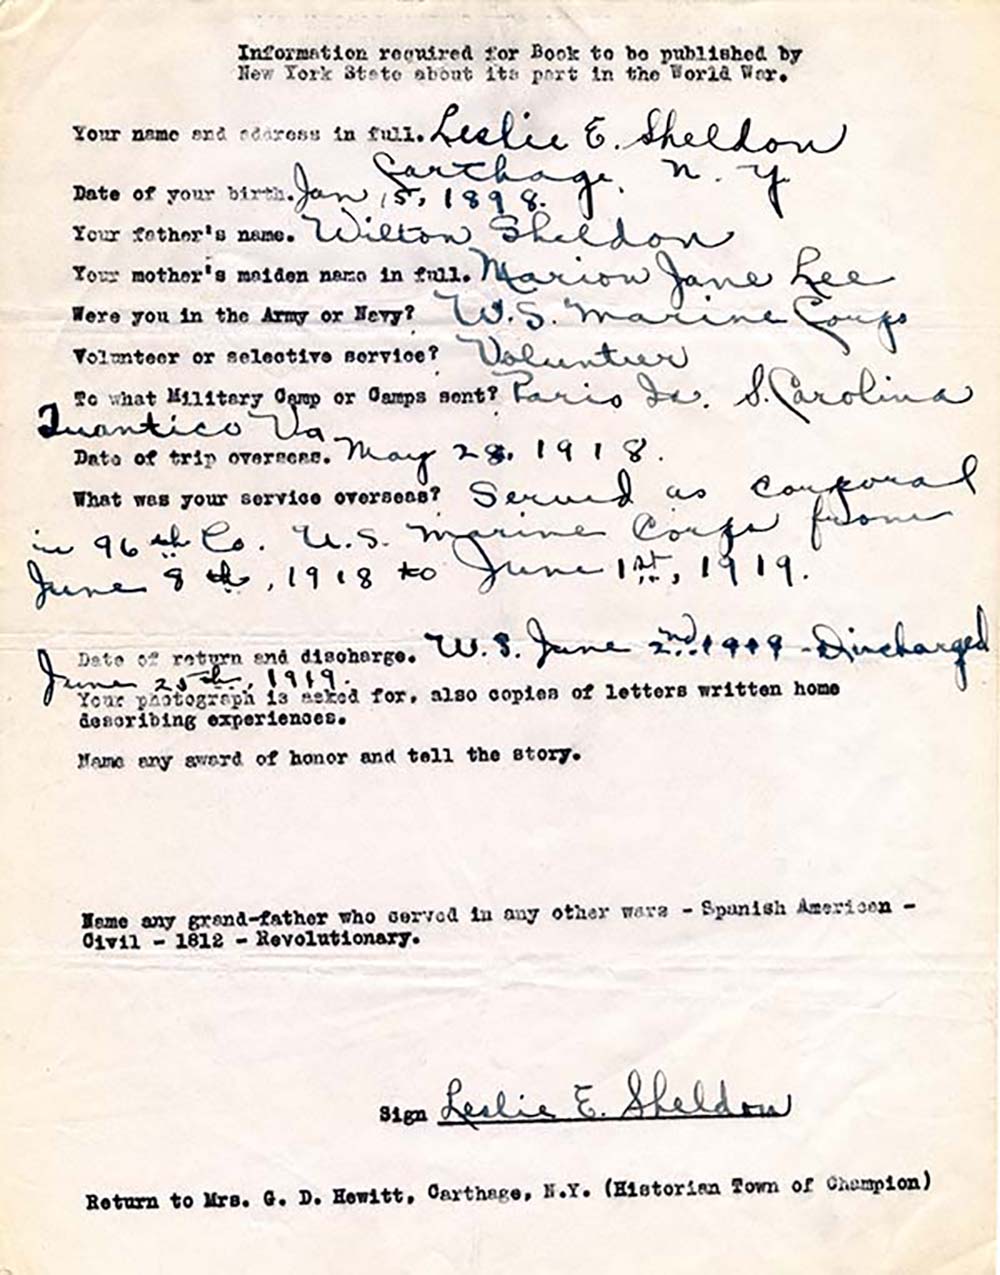 Information required for Book to be published by
New York State about its part in the World War.
Your name and address in full. Leslie E. Sheldon
Carthage, N. Y.
Date of your birth. Jan 15, 1898.
Your father's name. Wilton Sheldon
Your mother's maiden name in full. Marion Jane Lee
Were you in the Army or Navy? U.S. Marine Corps
Volunteer or selective service? Volunteer
To what Military Camp or Camps sent? Paris Is. S. Carolina
Quantico Va
Date of trip overseas. May 28, 1918.
What was your service overseas? Served as corporal
in 96th Co. U.S. Marine Corps from
June 8th, 1918 to June 1st, 1919.
Date of return and discharge. U.S. June 2nd 1919 - Discharged
June 25th, 1919.
Your photograph is asked for, also copies of letters written home
describing experiences.
Name any award of honor and tell the story.
Name any grand-father who served in any other wars - Spanish American -
Civil - 1812 - Revolutionary.
Sign Leslie E. Sheldon
Return to Mrs. G. D. Hewitt, Carthage, N.Y. (Historian Town of Champion)